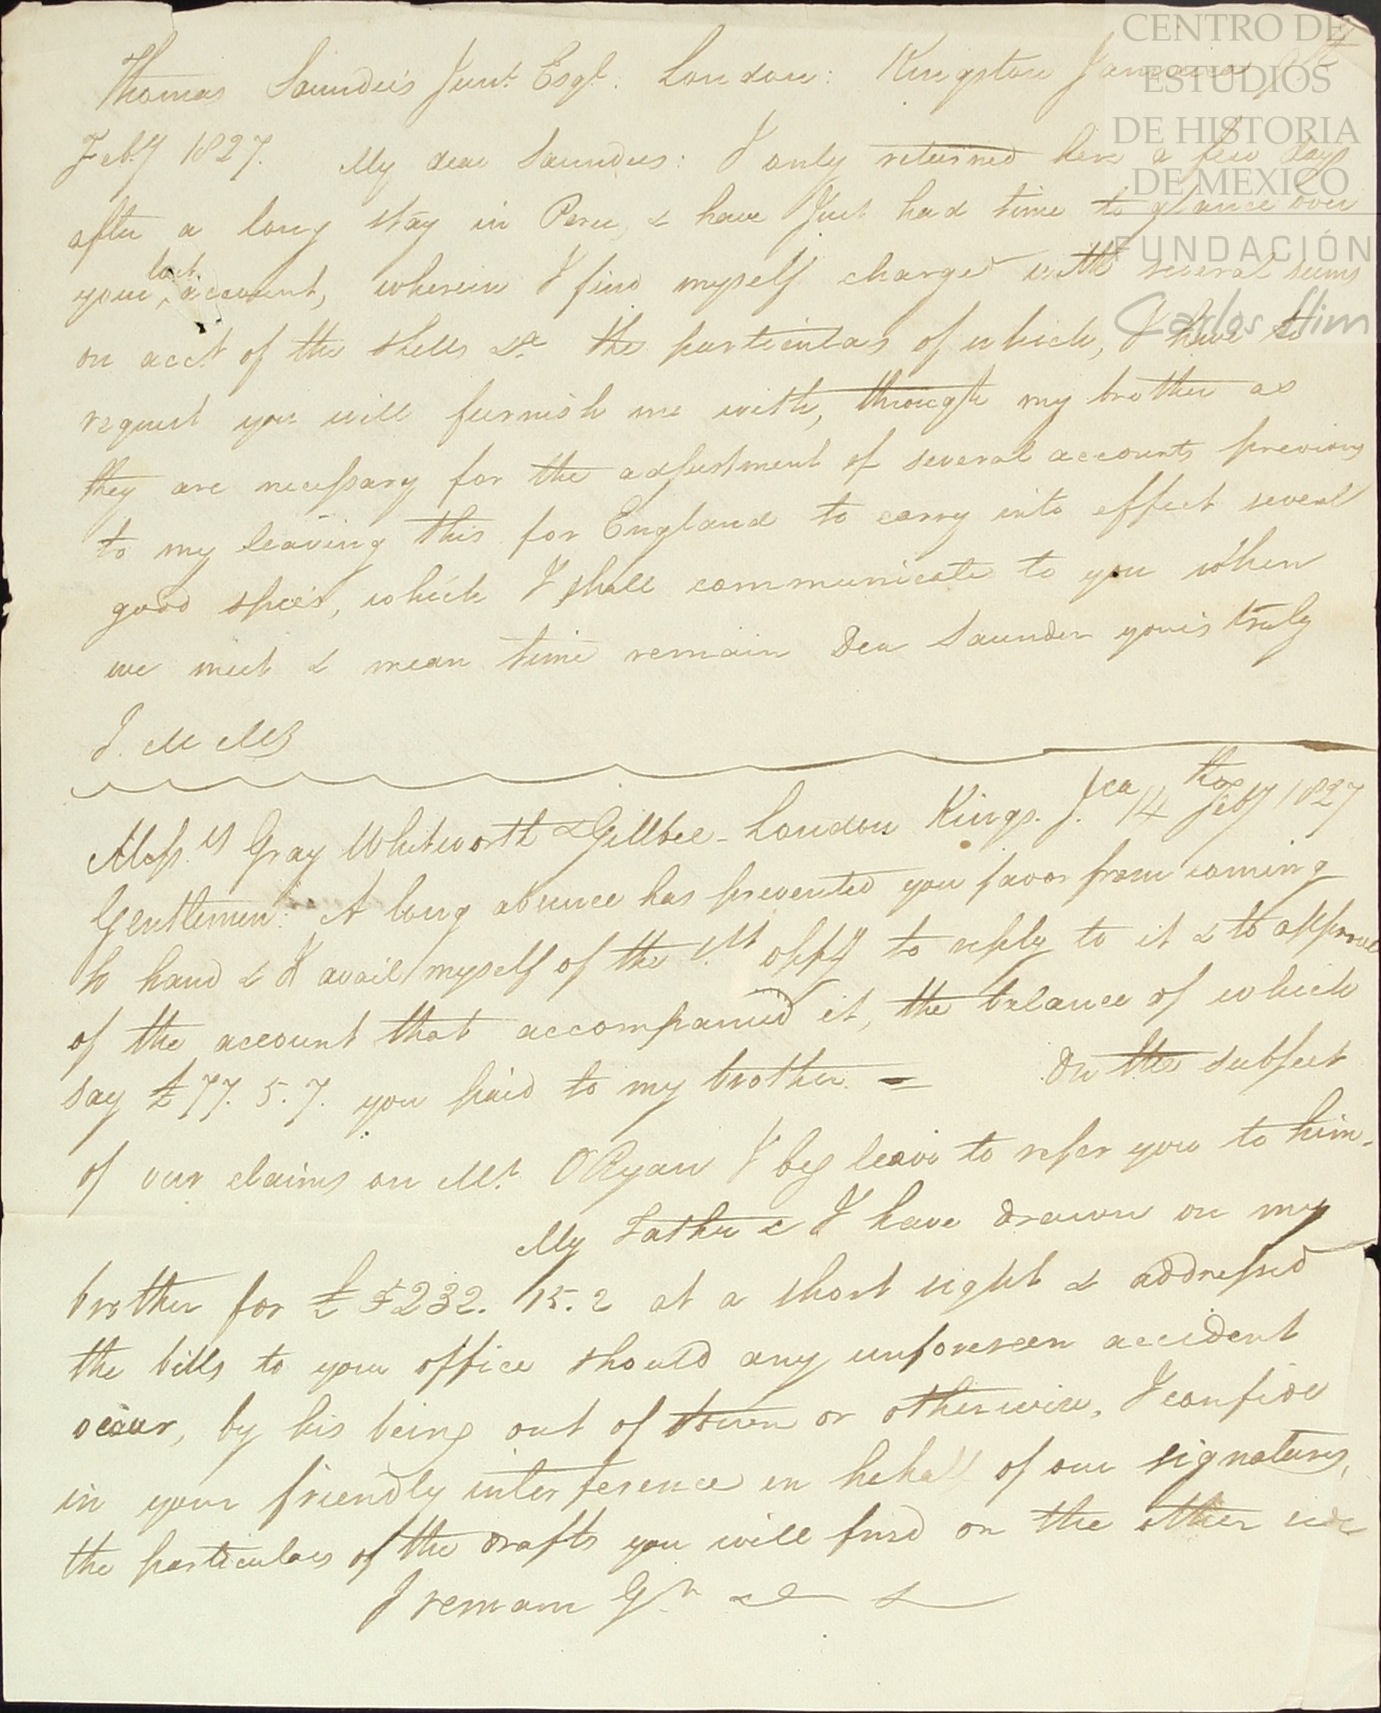 CENTRO DE
ESTUDIOS
DE HISTORIA
DE MEXICO
FUNDACIÓN
Carlos Slim
Thomas Saunders Junr. Esqr. London: Kingston Jamaica
Feby 1827. My dear Saunders: I only returned here a few days
after a long stay in Peru, & have just had time to glance over
your last account, wherein I find myself charged with several sums
on acct of the shells &a the particulars of which, I have to
request you will furnish me with, through my brother as
they are necessary for the adjustment of several accounts previous
to my leaving this for England to carry into effect several
good specs, which I shall communicate to you when
we meet & mean time remain Dear Saunders yours truly
J. M McB
Messrs Gray Whitworth & Gillbee - London Kings. Jca 14 th Feby 1827
Gentlemen: A long absence has prevented your favor from coming
to hand & I avail myself of the 1st oppy to reply to it & to approve
of the account that accompanied it, the balance of which
say £77. 5. 7. you paid to my brother = On the subject
of our claims on Mr. O'Ryan I beg leave to refer you to him.
My Father & I have drawn on my
brother for £ 5232. 15. 2 at a short sight & addressed
the bills to your office should any unforeseen accident
occur, by his being out of town or otherwise, I confide
in your friendly interference in behalf of our signatures,
the particulars of the drafts you will find on the other side
I remain Gn &c &